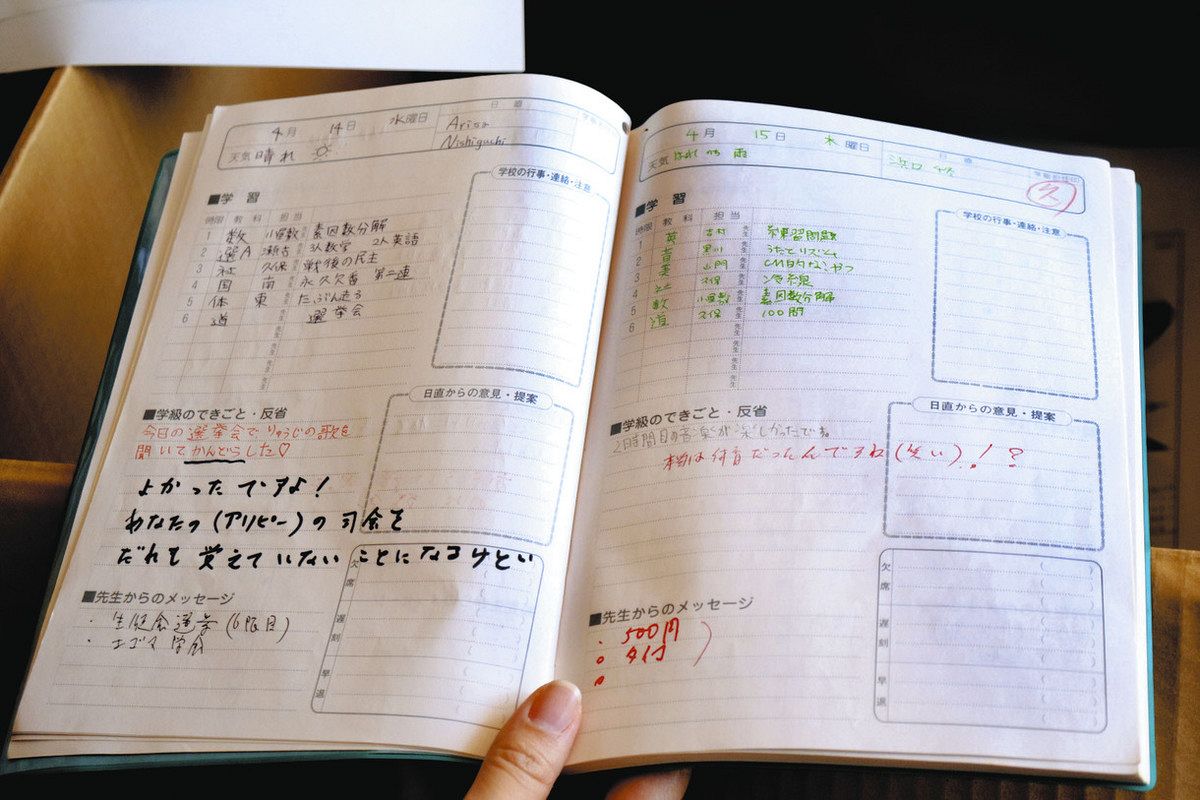 4月 14日 水曜日
日直
Arisa
Nishiguchi
天気 晴れ
■学習
学校の行事・連絡・注意
時限 教科 担当
1 数 小宮 素因数分解
2 選A 3人数学 2人英語
3 社 久保 戦後の民主
4 国 南 永久欠番 第二連
5 体 東 たぶん走る
6 道 選挙会
■学級のできごと・反省
日直からの意見・提案
今日の選挙会でりゅうじの歌を
聞いてかんどうした♡
よかったですよ!
あなたの(アリピー)の司会を
だれも覚えていないことになるけどい
欠席
遅刻
早退
■先生からのメッセージ
・生徒会選挙(6限目)
・エゴマ学
4月 15日 木曜日
日直
天気 はれのち雨
浜口
■学習
学校の行事・連絡・注意
時限 教科 担当
1 英 吉村 練習問題
2 音 黒川 うたとリズム
3 美 山門 CM的なやつ
4 社 久保 冷戦
5 数 小宮 素因数分解
6 道 久保 100問
■学級のできごと・反省
日直からの意見・提案
2時間目の音楽が楽しかったです。
本当は何育だったんですね(笑い)!?
欠席
遅刻
早退
■先生からのメッセージ
・500円